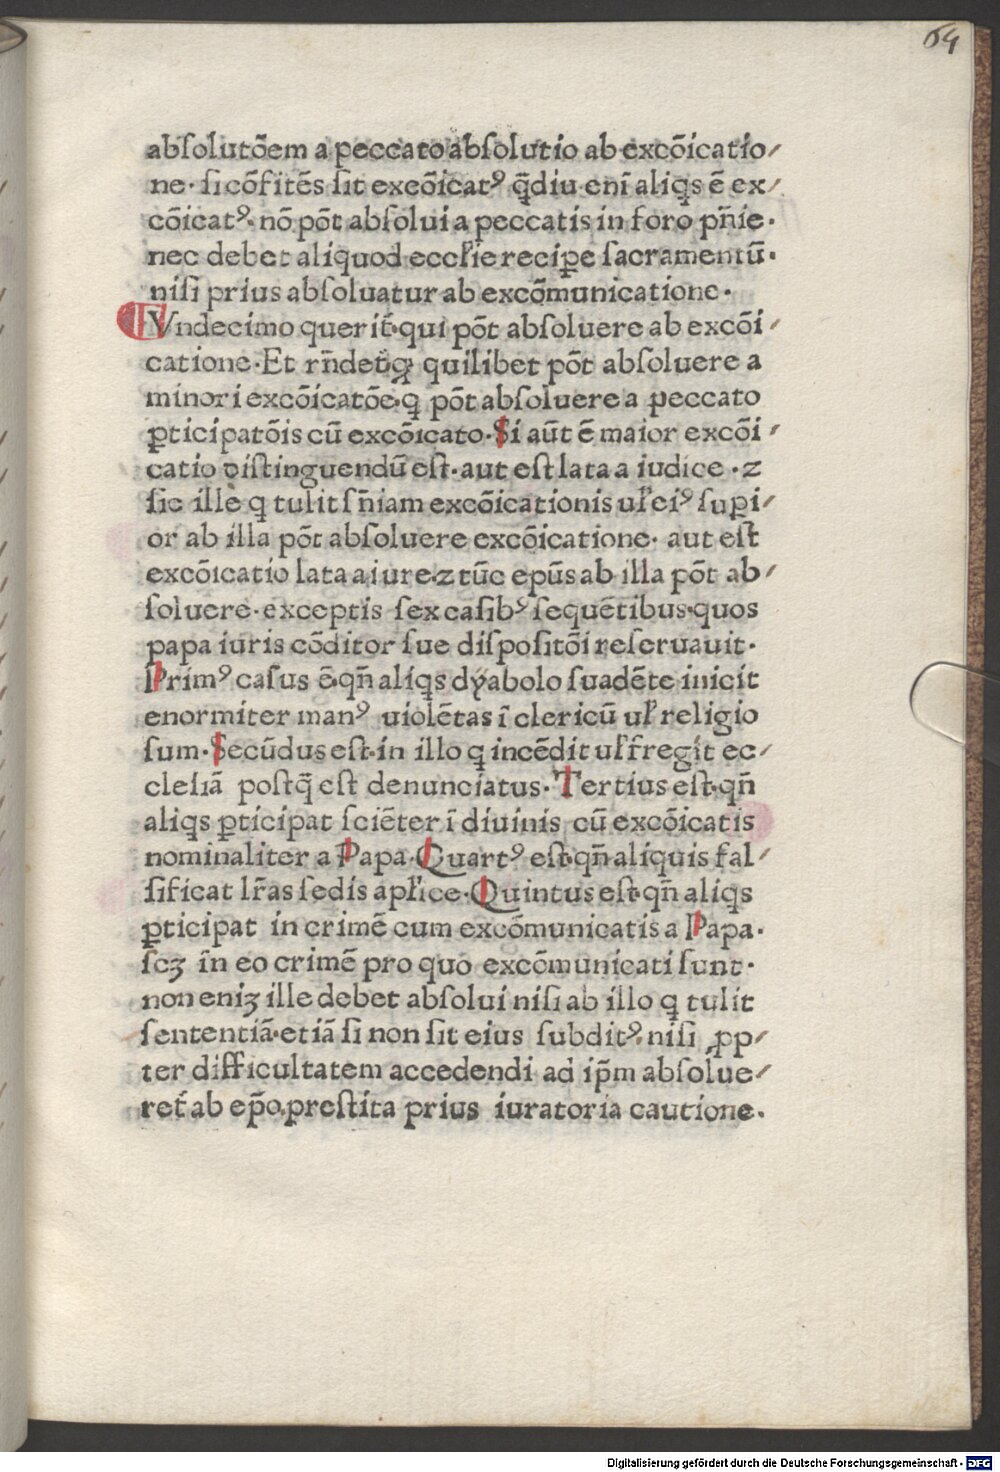 64
abſolutõem a peccato abſolutio ab excõicatio⸗
ne· ſi cõfitẽs ſit excõicatꝰ q̃diu eni᷃ aliqs ẽ ex⸗
cõicatꝰ· nõ põt abſolui a peccatis in foro pñie·
nec debet aliquod eccłie recipe̱ ſacramentũ·
niſi prius abſoluatur ab excõmunicatione·
Vndecimo querit᷑·qui põt abſoluere ab excõi⸗
catione·Et rñdet᷑ ꝙ quilibet põt abſoluere a
minori excõicatõe·q̇ põt abſoluere a peccato
ꝑticipatõis cũ excõicato·Si aũt ẽ maior excõi⸗
catio diſtinguendũ eſt·aut eſt lata a iudice ·⁊
ſic ille q tulit ſñiam excõicationis uł eiꝰ ſuꝑi⸗
or ab illa põt abſoluere excõicatione· aut eſt
excõicatio lata a iure·⁊ tũc epũs ab illa põt ab⸗
ſoluere·exceptis ſex caſibꝰ ſequẽtibus·quos
papa iuris cõditor ſue diſpoſitõi reſeruauit·
Primꝰ caſus ẽ·qñ aliqs dyabolo ſuadẽte inicit
enormiter manꝰ uiolẽtas ĩ clericũ uł religio
ſum·Secũdus eſt·in illo q incẽdit uł fregit ec⸗
cleſiã poſtq̃ eſt denunciatus·Tertius eſt·qñ
aliqs ꝑticipat ſciẽter ĩ diuinis cũ excõicatis
nominaliter a Papa·Quartꝰ eſt·qñ aliquis fal⸗
ſificat lr̃as ſedis apłice·Quintus eſt·qñ aliqs
ꝑticipat in crimẽ cum excõmunicatis a Papa·
ſcꝫ in eo crimẽ pro quo excõmunicati ſunt·
non eniꝫ ille debet abſolui niſi ab illo q tulit
ſententiã·etiã ſi non ſit eius ſubditꝰ·niſi ꝓp⸗
ter difficultatem accedendi ad ip̃m abſolue⸗
ret᷑ ab ep̃o·preſtita prius iuratoria cautione·
Digitalisierung gefördert durch die Deutsche Forschungsgemeinschaft · DFG